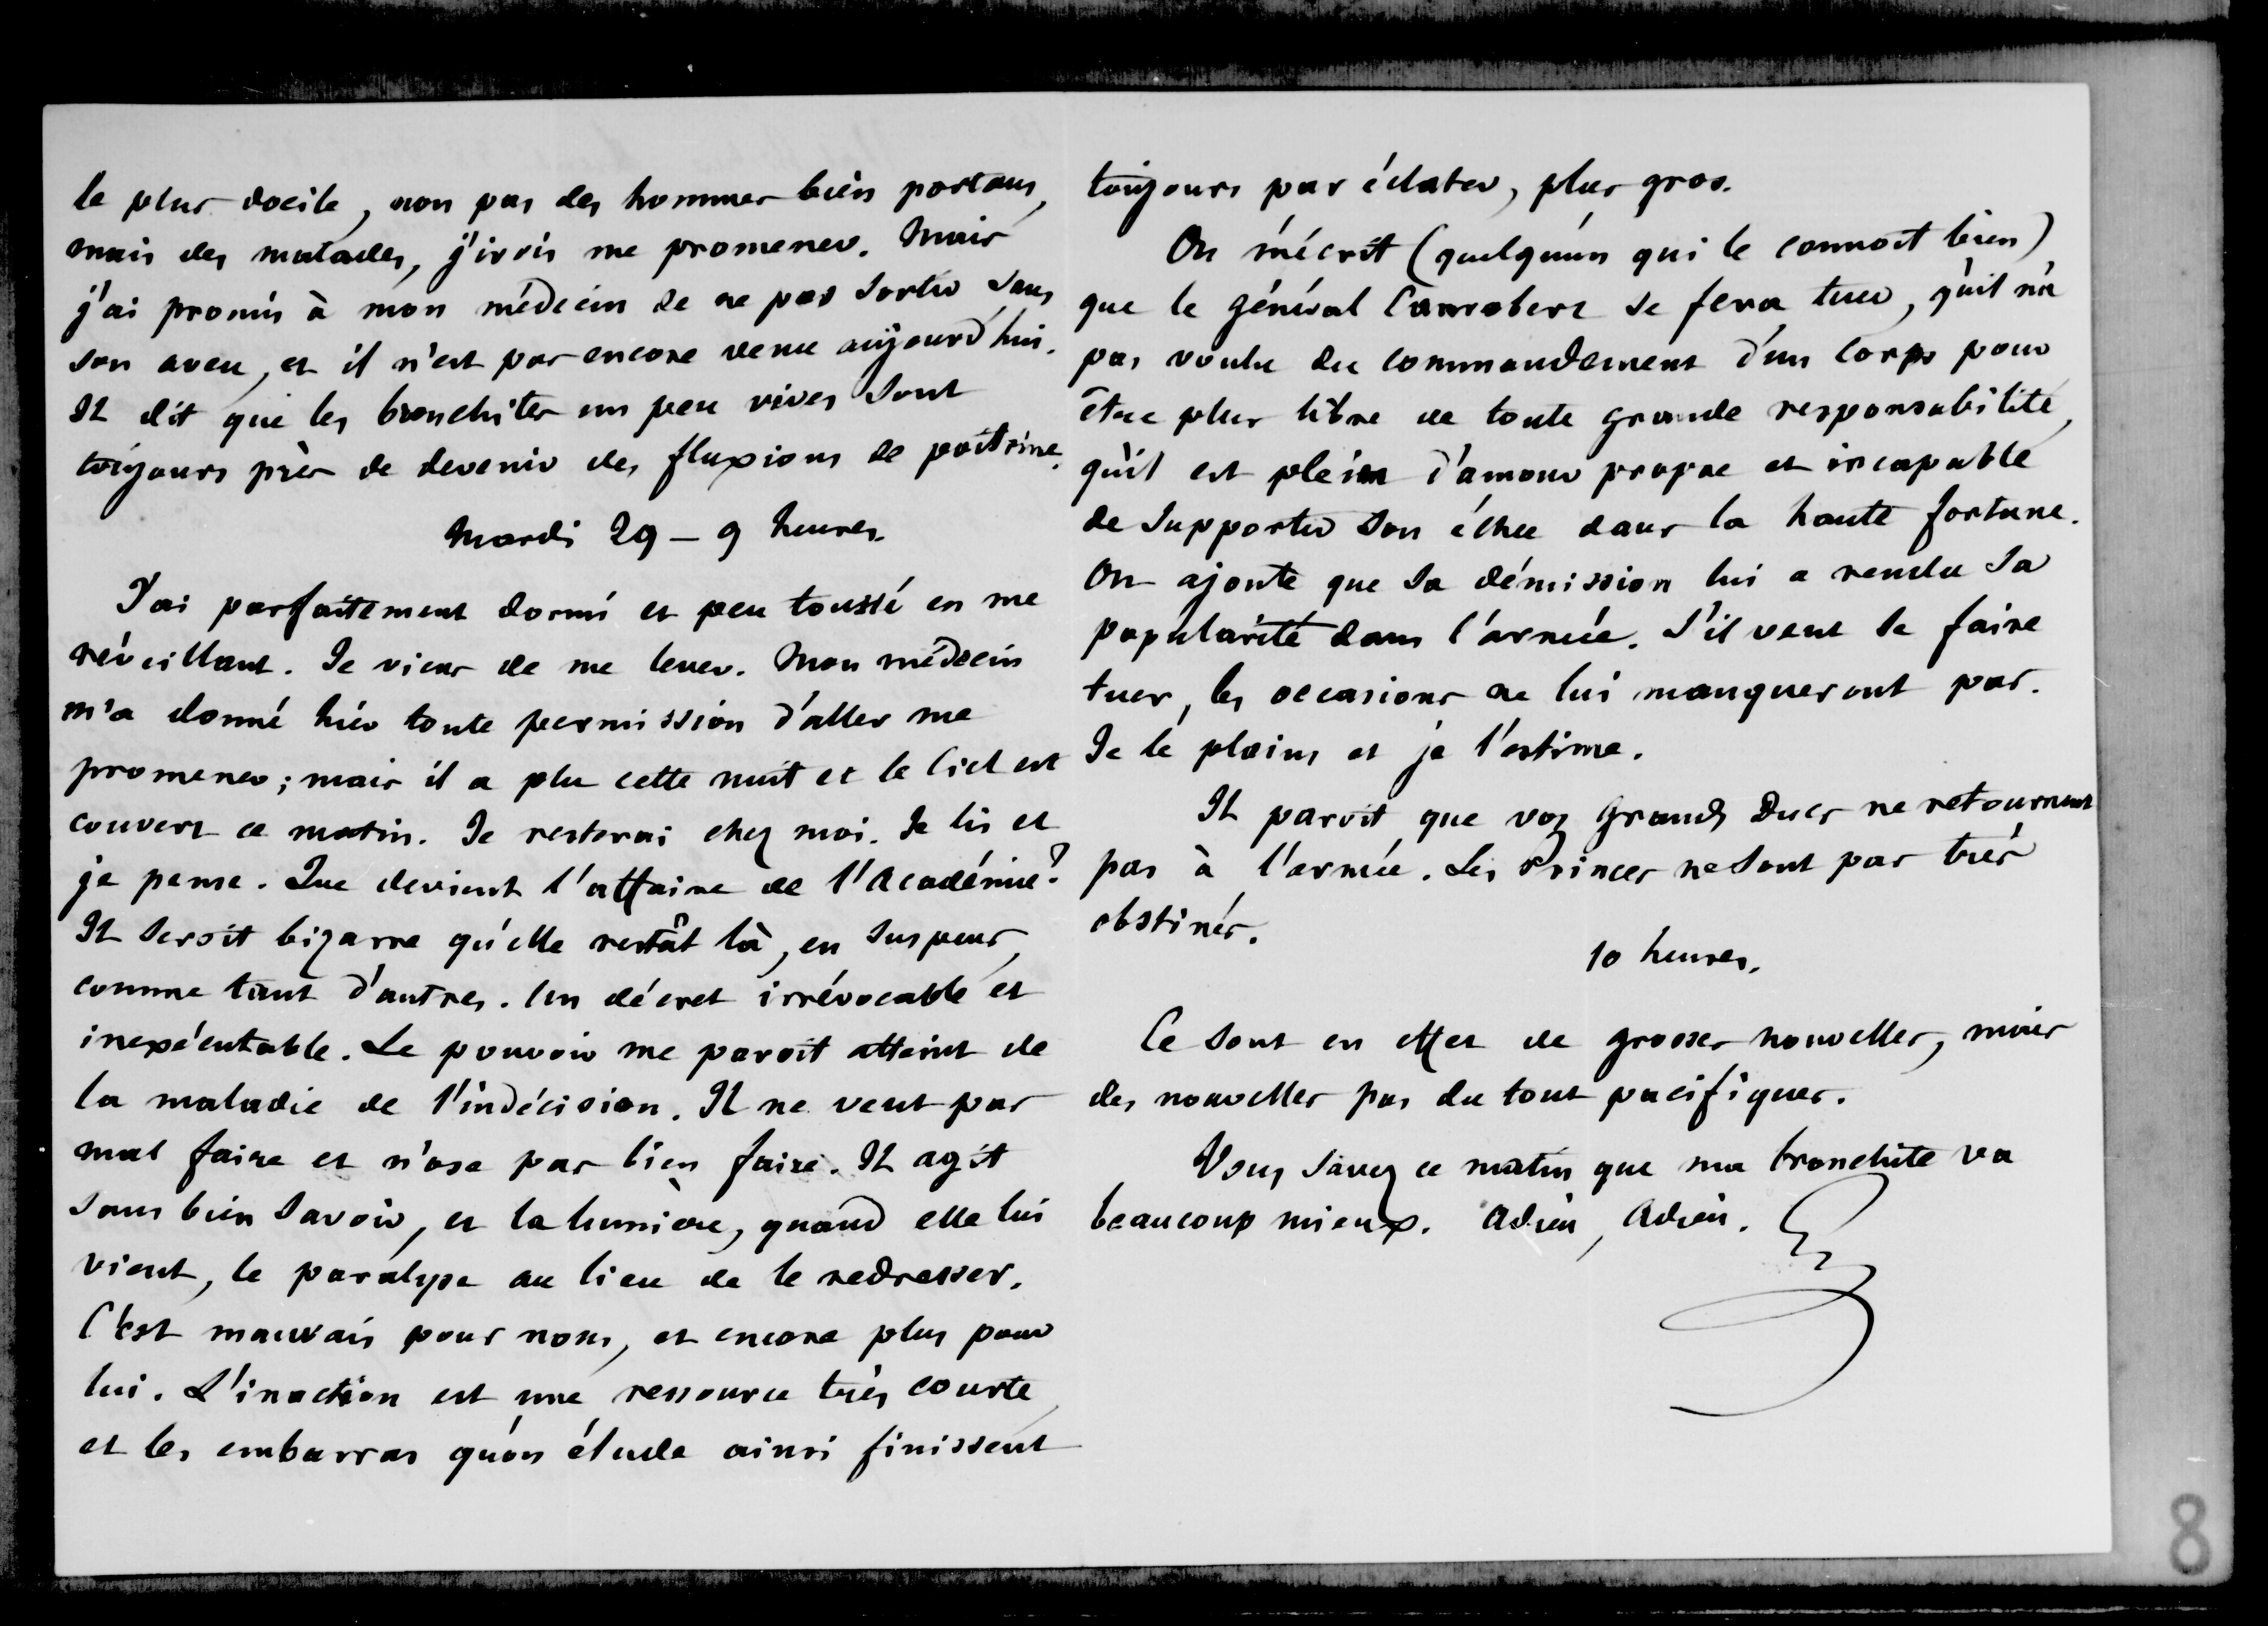 le plus docile, non pas des hommes bien portans,
mais des malades, j'irois me promener. Mais
j'ai promis à mon médecin de ne pas sortir sans
son aveu, et il n'est pas encore venu aujourd'hui.
Il dit que les bronchites un peu vives sont
toujours près de devenir des fluxions de poitrine.
Mardi 29 - 9 heures.
J'ai parfaitement dormi et peu toussé en me
réveillant. Je viens de me lever. Mon médecin
m'a donné hier toute permission d'aller me
promener ; mais il a plu cette nuit et le Ciel est
couvert ce matin. Je resterai chez moi. Je lis et
je pense. Que devient l'affaire de l'Académie ?
Il seroit bizarre qu'elle restât là, en suspens,
comme tant d'autres. Un décret irrévocable et
inexécutable. Le pouvoir me paroit atteint de
la maladie de l'indécision. Il ne veut pas
mal faire et n'ose pas bien faire. Il agit
sans bien savoir, et la lumière, quand elle lui
vient, le paralyse au lieu de le redresser.
C'est mauvais pour nous, et encore plus pour
lui. L'inaction est une ressource très courte,
et les embarras qu'on élude ainsi finissent
toujours par éclater, plus gros.
On m'écrit (quelqu'un qui le connoit bien),
que le général Canrobert se fera tuer, qu'il n'a
pas voulu du commandement d'un Corps pour
être plus libre de toute grande responsabilité,
qu'il est plein d'amour propre et incapable
de supporter son échec dans la haute fortune.
On ajoute que sa démission lui a rendu sa
popularité dans l'armée. S'il veut se faire
tuer, les occasions ne lui manqueront pas.
Je le plains et je l'estime.
Il paroit que vos Grands Ducs ne retournent
pas à l'armée. Les Princes ne sont pas très
obstinés.
10 heures.
Ce sont en effet de grosses nouvelles, mais
des nouvelles pas du tout pacifiques.
Vous savez ce matin que ma bronchite va
beaucoup mieux. Adieu, Adieu.
8